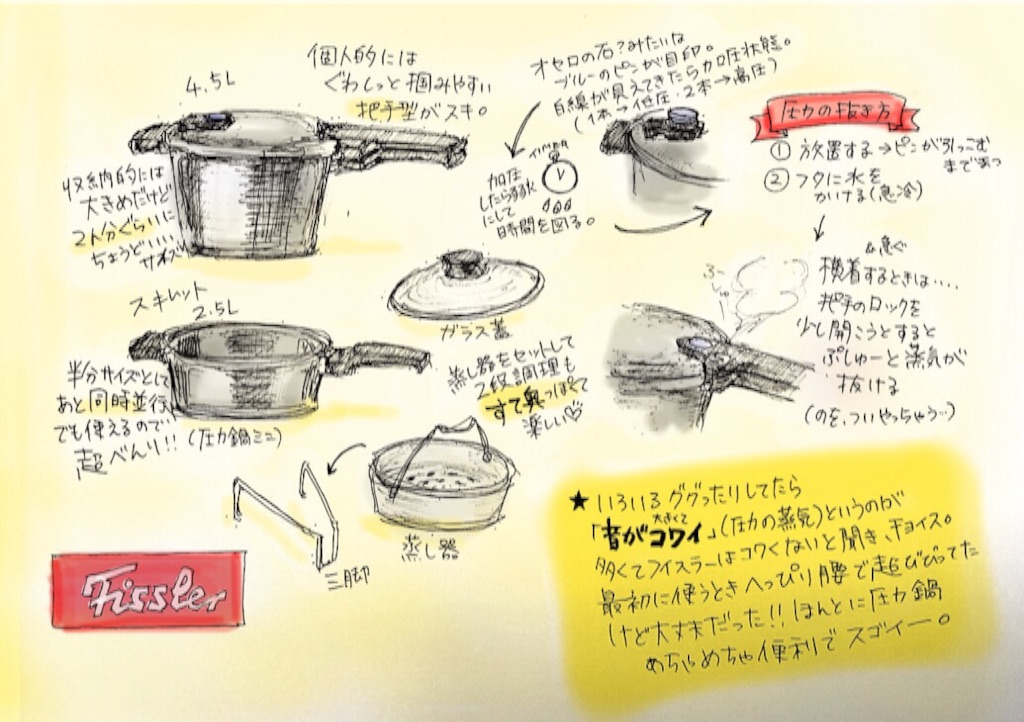 4.5L
個人的には
ぐわしっと掴みやすい
把手型がスキ。
収納的には
大きめだけど
2人分ぐらいに
ちょうどいい
サイズ
オセロの石?みたいな
ブルーのピンが目印。
白線が見えてきたら加圧状態。
(1本→低圧、2本→高圧)
加圧
したらすぐ弱火
にして
時間を図る。
圧力の抜き方
① 放置する→ピンが引っこむ
まで待つ
② フタに水を
かける(急冷)
&急ぐ
横着するときは‥‥
把手のロックを
少し開こうとすると
ぷしゅーと蒸気が
抜ける
(のを、ついやっちゃう…)
スキレット
2.5L
半分サイズとして
あと同時並行
でも使えるので
超べんり!!
(圧力鍋ミニ)
ガラス蓋
蒸し器をセットして
2段調理も
すて奥っぽくて
楽しい♡
蒸し器
三脚
Fissler
★いろいろググったりしてたら
「音が大きくてコワイ」(圧力の蒸気)というのが
多くてフィスラーはコワくないと聞き、チョイス。
最初に使うときへっぴり腰で超びびってた
けど大丈夫だった!!ほんとに圧力鍋
めちゃめちゃ便利でスゴイー。